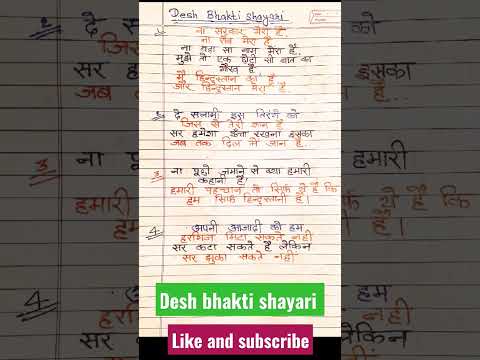 Desh Bhakti shayari
ना सरकार मेरा है
ना रौब मेरा है
ना बड़ा सा नाम मेरा है
मुझे तो एक छोटी सी बात का
गौरव है
मैं हिन्दुस्तान का हूँ
और हिन्दुस्तान मेरा है
2. दे सलामी इस तिरंगे को
जिस से तेरी शान है
सर हमेशा ऊँचा रखना इसका
जब तक दिल में जान है
3. ना पूछो जमाने से क्या हमारी
कहानी है
हमारी पहचान तो सिर्फ ये है कि
हम सिर्फ हिन्दुस्तानी है।
4. अपनी आजादी को हम
हरगिज मिटा सकते नही
सर कटा सकते है लेकिन
सर झुका सकते नहीं
Desh bhakti shayari
Like and subscribe